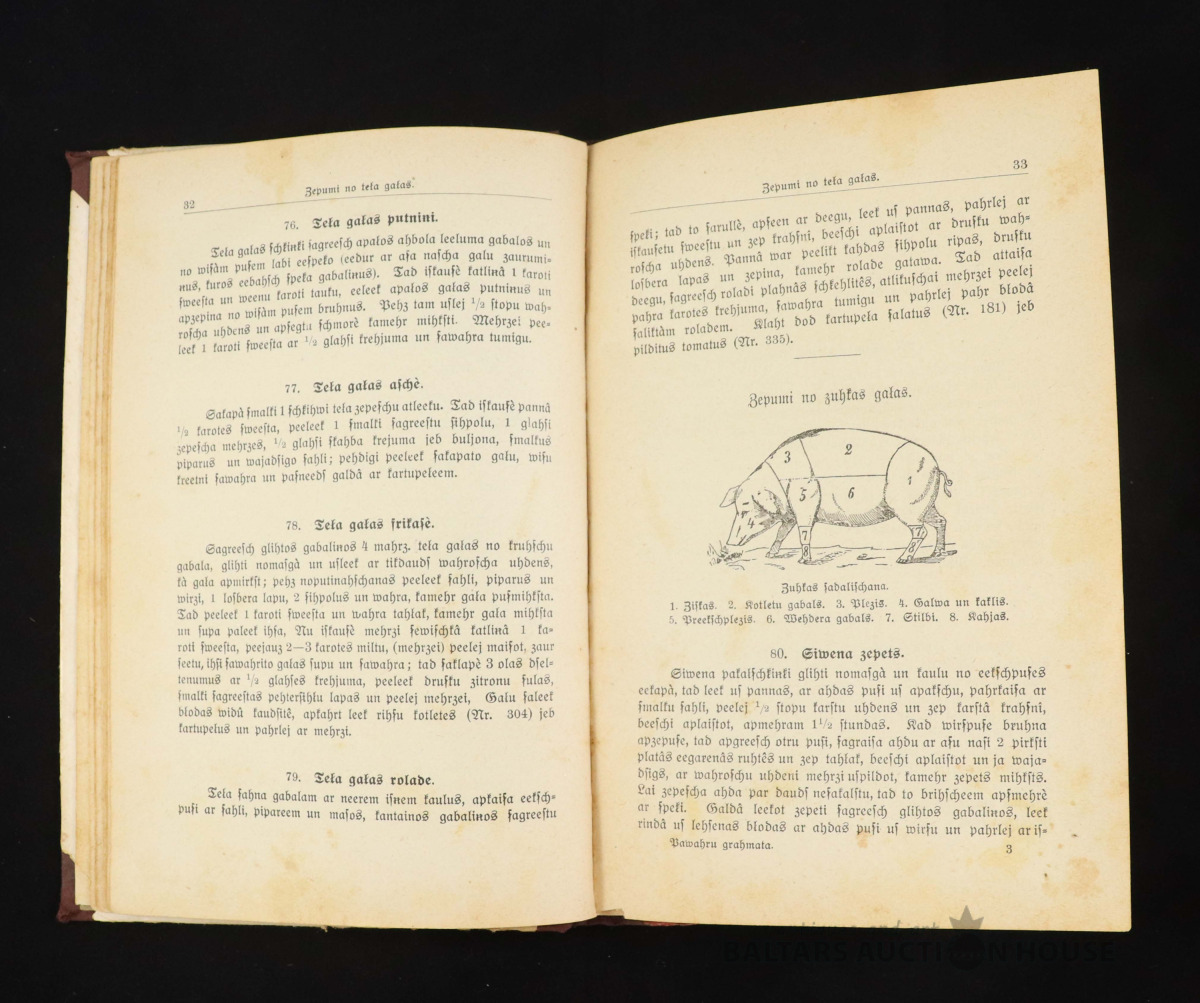 32
Zepumi no teļa gaļas.
76. Teļa gaļas putnini.
Teļa gaļas ſchkiņķi ſagreeſch apaļos ahbola leeluma gabalos un
no wiſàm puſem labi eeſpeķo (eedur ar aſa naſcha galu zaurumi=
ņus, kuros eebahſch ſpeķa gabaliņus). Tad iſkauſê katliņâ 1 karoti
ſweeſta un weenu karoti tauku, eeleek apaļos gaļas putniņus un
apzepina no wiſàm puſem bruhnus. Pehz tam uſlej 1/2 ſtopu wah=
roſcha uhdens un apſegtu ſchmorê kamehr mihkſti. Mehrzei pee=
leek 1 karoti ſweeſta ar 1/2 glahſi krehjuma un ſawahra tumigu.
77. Teļa gaļas aſchè.
Sakapâ ſmalki 1 ſchķihwi teļa zepeſchu atleeku. Tad iſkauſê pannâ
1/2 karotes ſweeſta, peeleek 1 ſmalki ſagreeſtu ſihpolu, 1 glahſi
zepeſcha mehrzes, 1/2 glahſi ſkahba krejuma jeb buljona, ſmalkus
piparus un wajadſigo ſahli; pehdigi peeleek ſakapato gaļu, wiſu
kreetni ſawahra un paſneeds galdâ ar kartupeļeem.
78. Teļa gaļas frikaſè.
Sagreeſch glihtos gabaliņos 4 mahrz. teļa gaļas no kruhſchu
gabala, glihti nomaſgâ un uſleek ar tikdauds wahroſcha uhdens,
kà gaļa apmirkſt; pehz noputinahſchanas peeleek ſahli, piparus un
wirzi, 1 lorbera lapu, 2 ſihpolus un wahra, kamehr gaļa puſmihkſta.
Tad peeleek 1 karoti ſweeſta un wahra tahlak, kamehr gaļa mihkſta
un ſupa paleek ihſa, Nu iſkauſê mehrzi ſewiſchkâ katliņâ 1 ka=
roti ſweeſta, peejauz 2—3 karotes miltu, (mehrzei) peelej maiſot, zaur
ſeetu, ihſi ſawahrito gaļas ſupu un ſawahra; tad ſakļapê 3 olas dſel=
tenumus ar 1/2 glahſes krehjuma, peeleek druſku zitronu ſulas,
ſmalki ſagreeſtas pehterſihļu lapas un peelej mehrzei, Gaļu ſaleek
bļodas widû kaudſitê, apkahrt leek rihſu kotletes (Nr. 304) jeb
kartupeļus un pahrlej ar mehrzi.
79. Teļa gaļas rolade.
Teļa ſahna gabalam ar neerem iſņem kaulus, apkaiſa eekſch=
puſi ar ſahli, pipareem un maſos, kantainos gabaliņos ſagreeſtu
33
Zepumi no teļa gaļas.
ſpeķi; tad to ſarullè, apſeen ar deegu, leek uſ pannas, pahrlej ar
iſkauſetu ſweeſtu un zep krahſni, beeſchi aplaiſtot ar druſku wah=
roſcha uhdens. Pannâ war peelikt kahdas ſihpolu ripas, druſku
lorbera lapas un zepina, kamehr rolade gatawa. Tad attaiſa
deegu, ſagreeſch roladi plahnâs ſchķehlitês, atlikuſchai mehrzei peelej
pahra karotes krehjuma, ſawahra tumigu un pahrlej pahr bļodâ
ſaliktàm roladem. Klaht dod kartupeļa ſalatus (Nr. 181) jeb
pilditus tomatus (Nr. 335).
Zepumi no zuhkas gaļas.
3
2
1
5
6
4
7
8
7
8
Zuhkas ſadaliſchana.
1. Ziſkas. 2. Kotletu gabals. 3. Plezis. 4. Galwa un kaklis.
5. Preekſchplezis. 6. Wehdera gabals. 7. Stilbi. 8. Kahjas.
80. Siwena zepets.
Siwena pakaļſchkiņķi glihti nomaſgâ un kaulu no eekſchpuſes
eekapâ, tad leek uſ pannas, ar ahdas puſi uſ apakſchu, pahrkaiſa ar
ſmalku ſahli, peelej 1/2 ſtopu karſtu uhdens un zep karſtâ krahſni,
beeſchi aplaiſtot, apmehram 1 1/2 ſtundas. Kad wirſpuſe bruhna
apzepuſe, tad apgreeſch otru puſi, ſagraiſa ahdu ar aſu naſi 2 pirkſti
platâs eegarenâs ruhtês un zep tahlak, beeſchi aplaiſtot un ja waja=
dſigs, ar wahroſchu uhdeni mehrzi uſpildot, kamehr zepets mihkſts.
Lai zepeſcha ahda par daudſ neſakalſtu, tad to brihſcheem apſmehrè
ar ſpeķi. Galdâ leekot zepeti ſagreeſch glihtos gabaliņos, leek
rindâ uſ lehſenas bļodas ar ahdas puſi uſ wirſu un pahrlej ar iſ=
Pawahru grahmata.
3
BALTARS AUCTION HOUSE